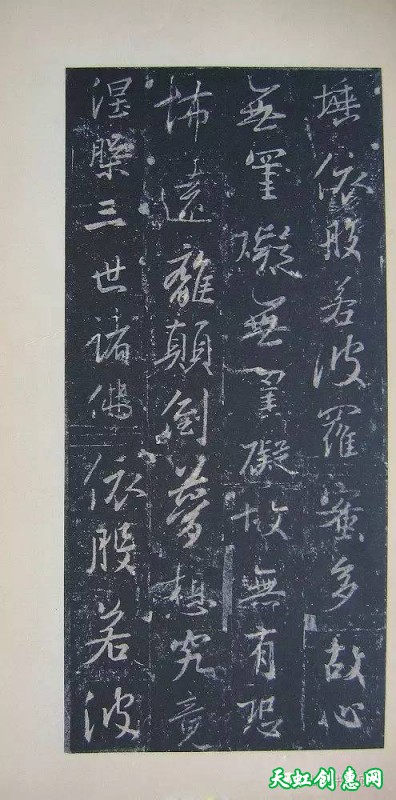 埵依般若波羅蜜多故心
無罣礙無罣礙故無有恐
怖遠離顛倒夢想究竟
涅槃三世諸佛依般若波
天虹创惠网